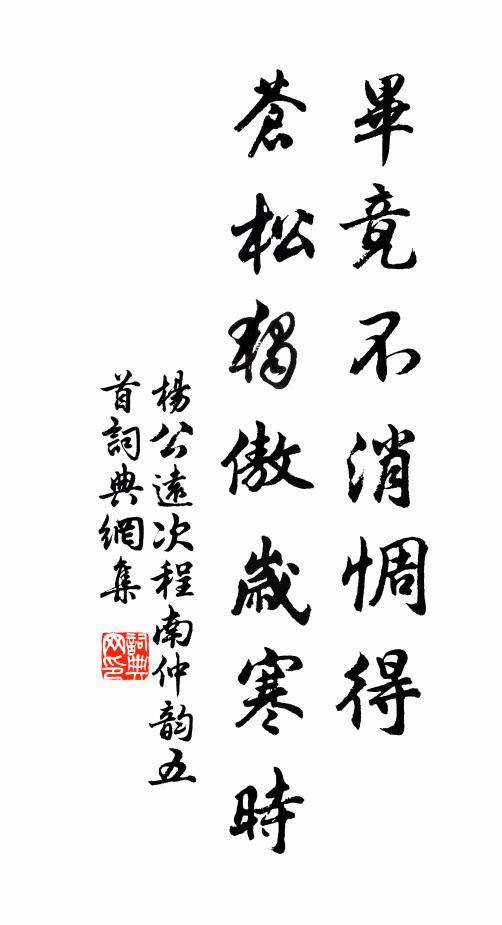 畢竟不消惆得
蒼松獨傲歲寒時
楊公遠次程南仲韵五
首詞典網集
詞典网印